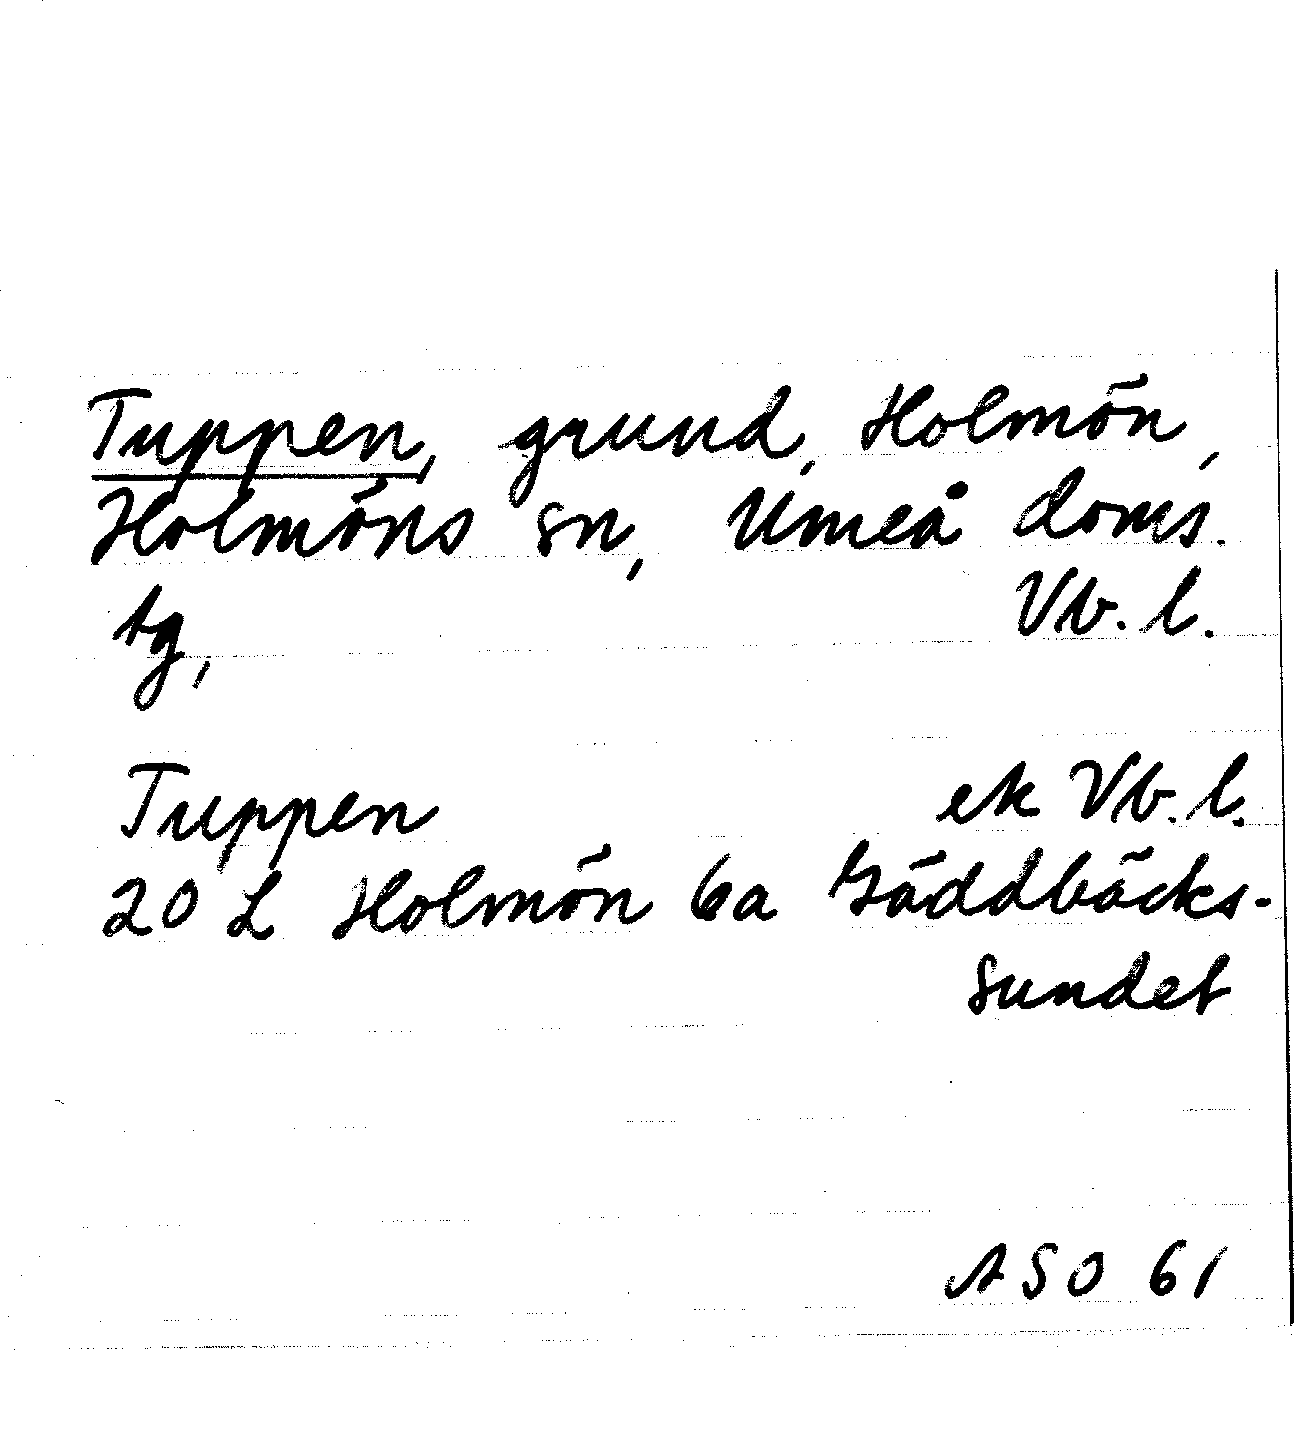 Tuppen, grund, Holmön,
Holmöns sn, Umeå doms.
tg, Vb. l.
Tuppen ek Vb. l.
20 L Holmön 6a Gäddbäcks-
sundet
ASO 61